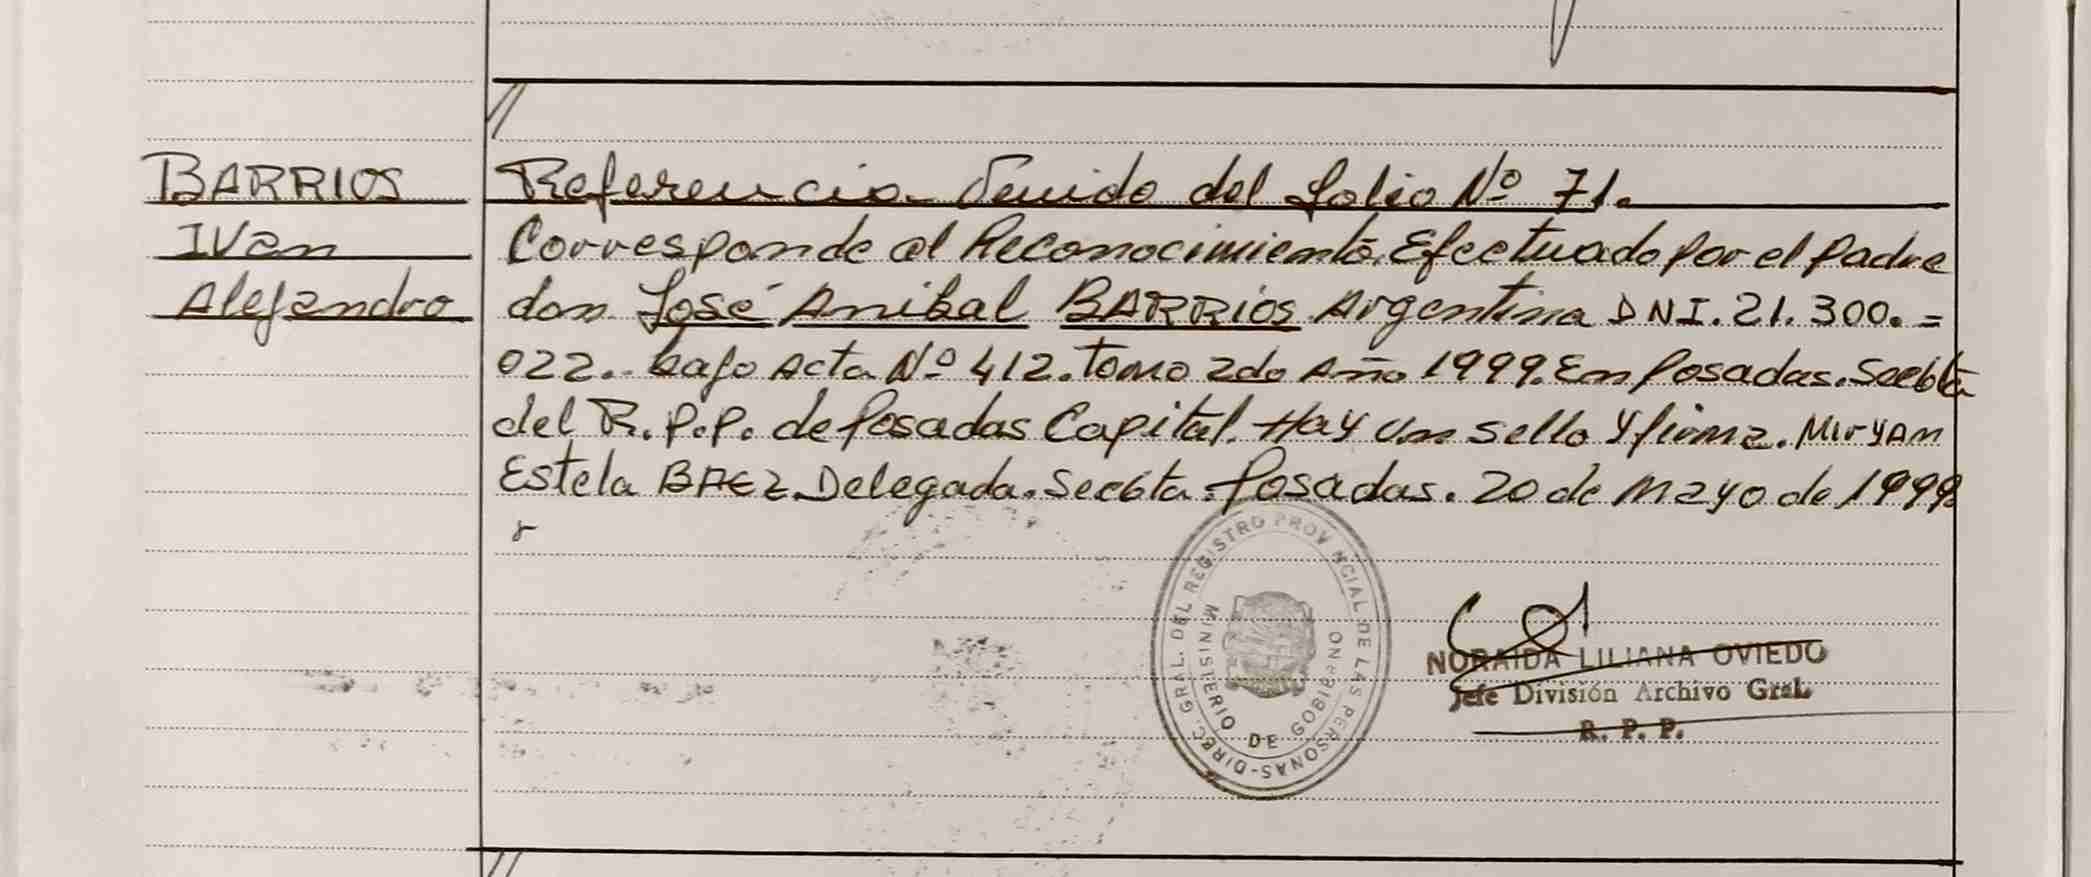 BARRIOS
Ivan
Alejandro
Referencia Venido del Folio Nº 71.
Corresponde al Reconocimiento. Efectuado por el Padre
don José Anibal BARRIOS Argentina DNI. 21. 300. =
022.. bajo Acta Nº 412. tomo 2do Año 1999. En Posadas.
del R. P. P. de Posadas Capital. Hay un sello y firma. Miryam
Estela BAEZ Delegada. Posadas. 20 de Mayo de 1999
DIREC. GRAL. DEL REGISTRO PROVINCIAL DE LAS PERSONAS-
MINISTERIO DE GOBIERNO
NORAIDA LILIANA OVIEDO
Jefe División Archivo Gral.
R. P. P.